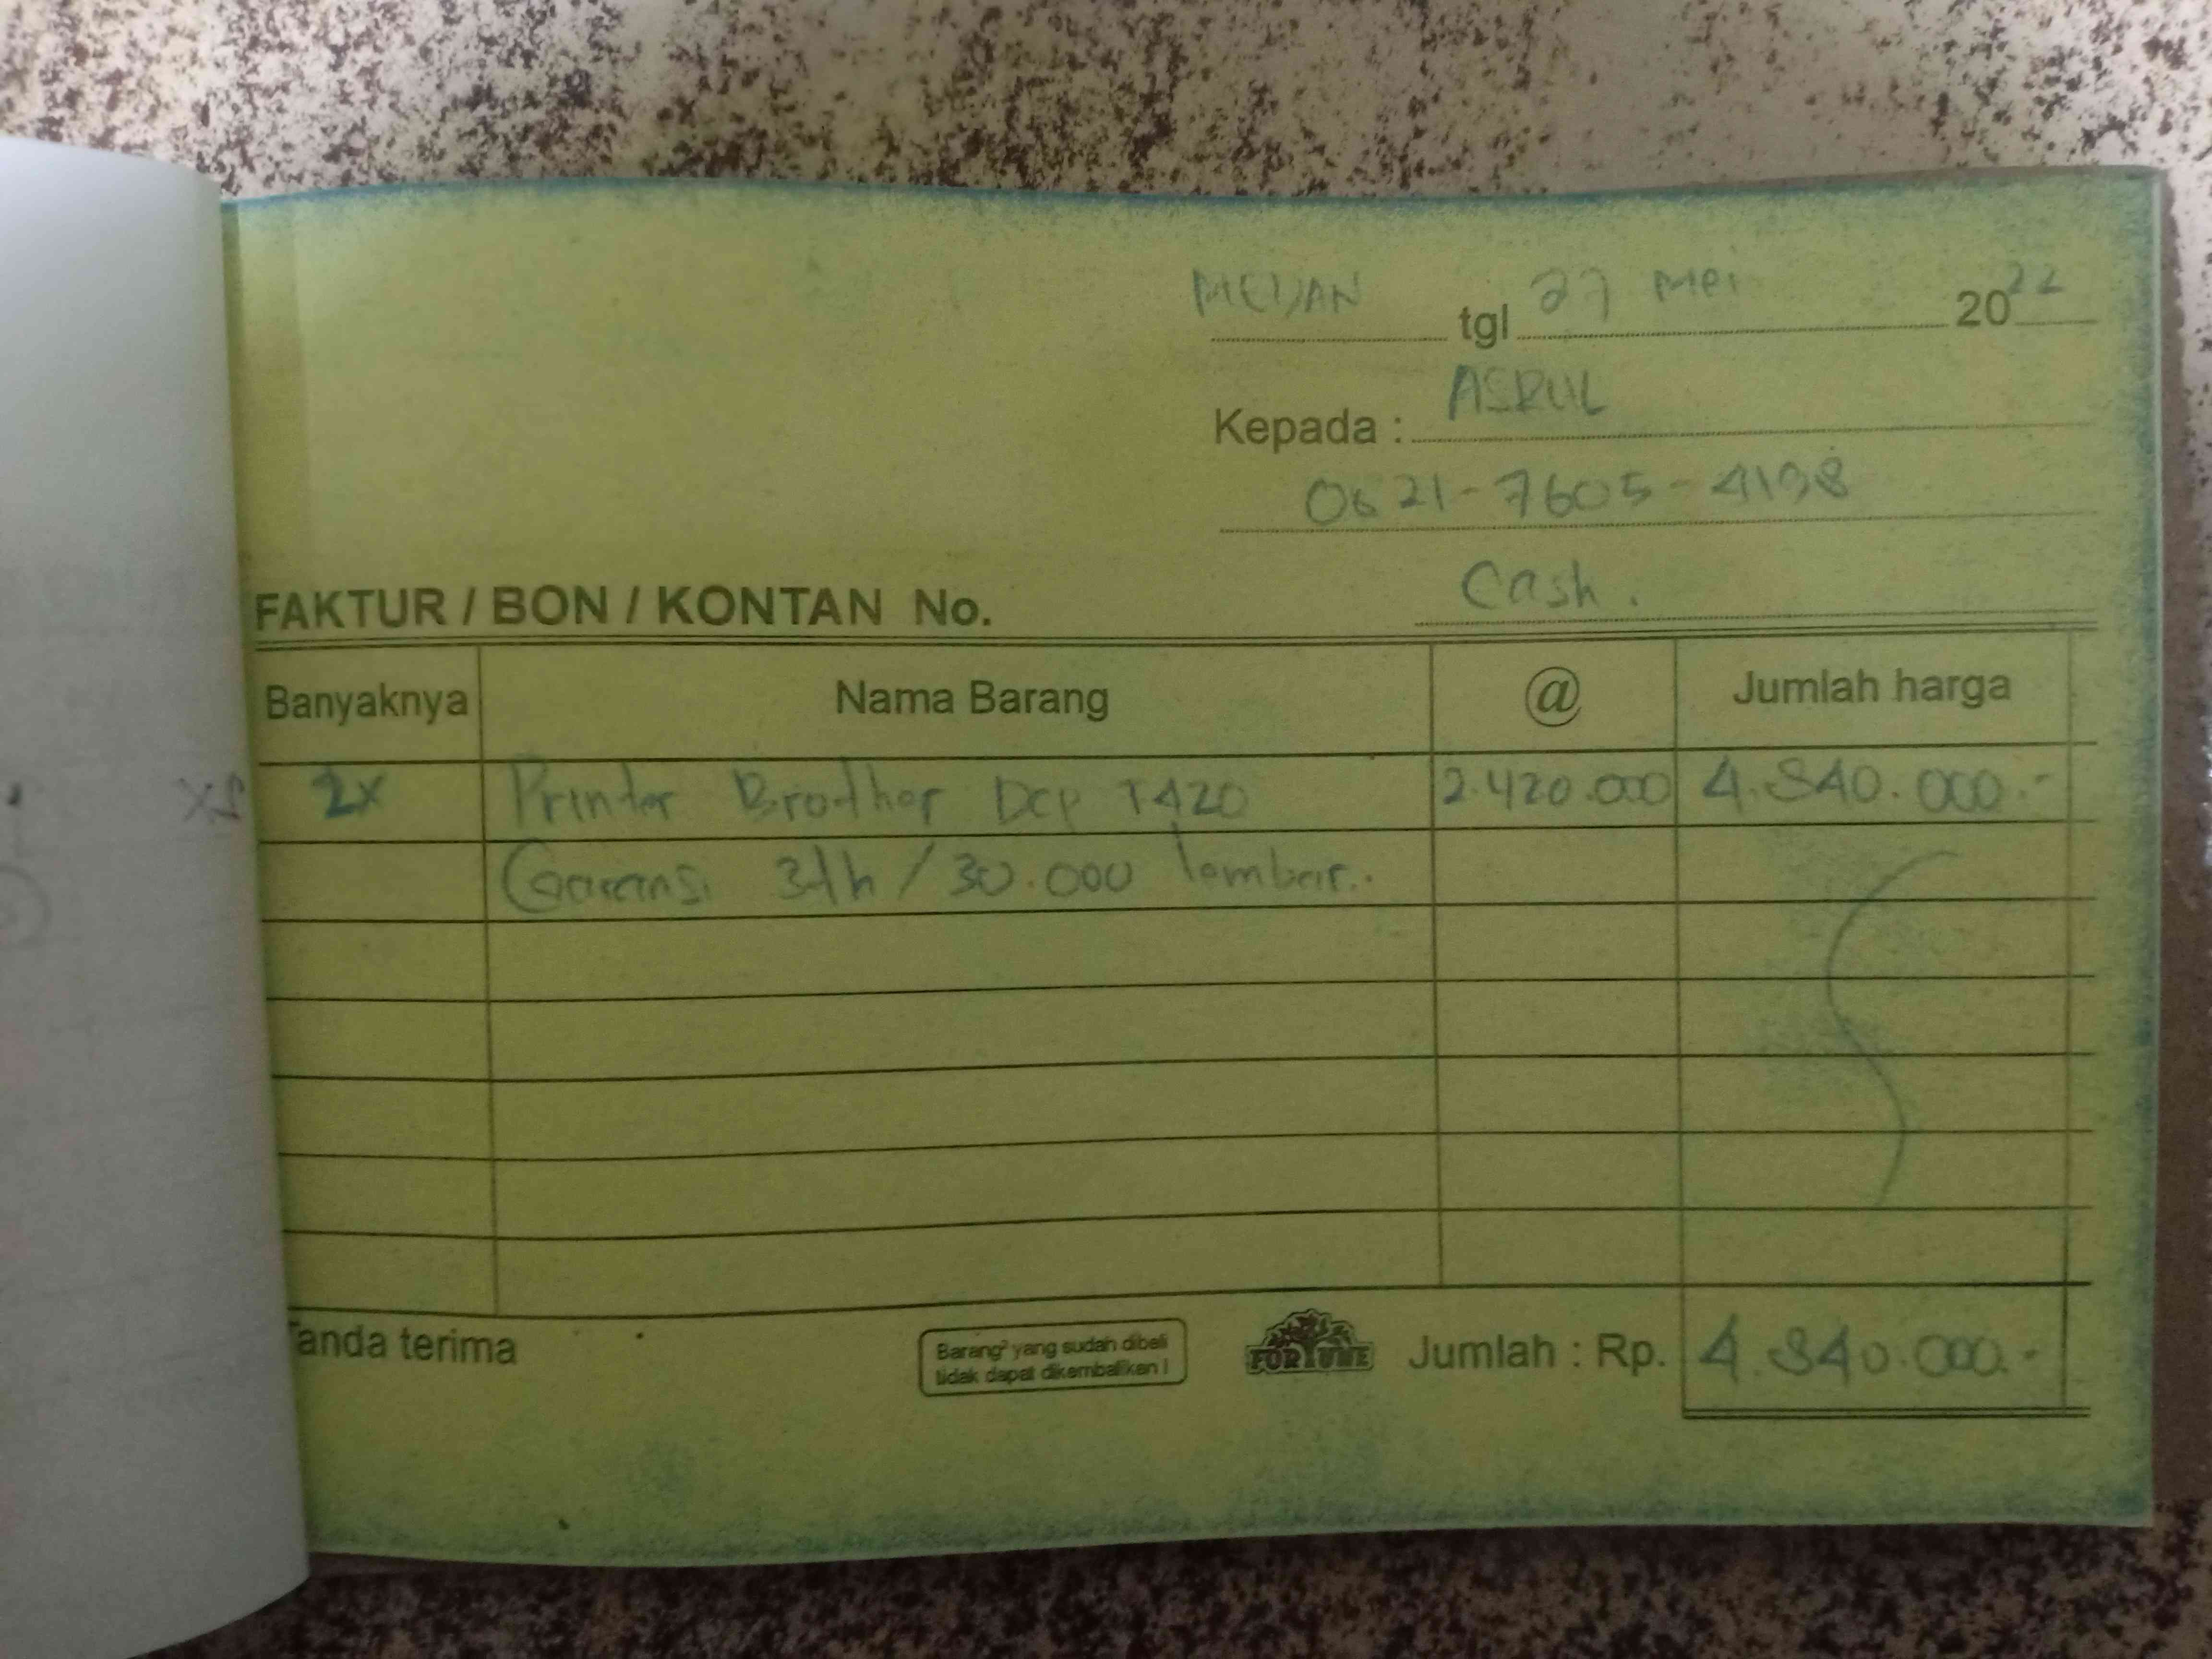 MEDAN tgl 27 Mei 2022
Kepada : ASRUL
0821-7605-4198
Cash.
FAKTUR / BON / KONTAN No.
Banyaknya Nama Barang @ Jumlah harga
2x Printer Brother Dcp T420 2.420.000 4.840.000.-
Garansi 3th / 30.000 lembar.
Tanda terima
Barang² yang sudah dibeli
tidak dapat dikembalikan !
FORTUNE
Jumlah : Rp. 4.840.000.-